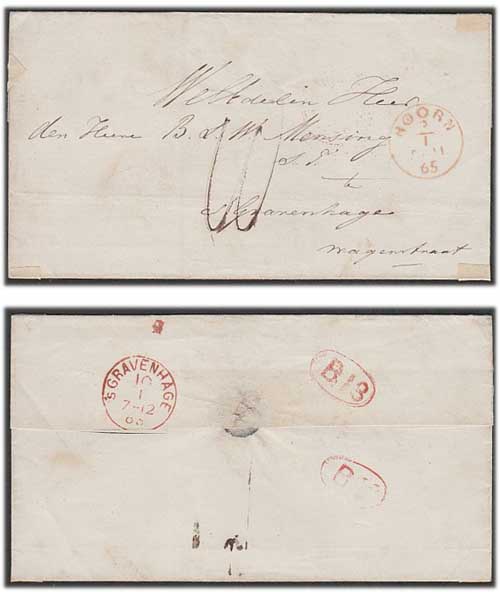 Weledelen Heer
den Heere B. L. W. Mensing
S. E.
te
's Gravenhage
Wagenstraat
10
HOORN
1
65
'SGRAVENHAGE
10
1
7-12
65
B 13
B